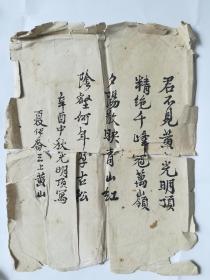 君不見黃山光明頂
精絕千峰冠萬嶺
夕陽散映青山紅
陰壑何年存古松
辛酉中秋光明頂寫
三上黃山